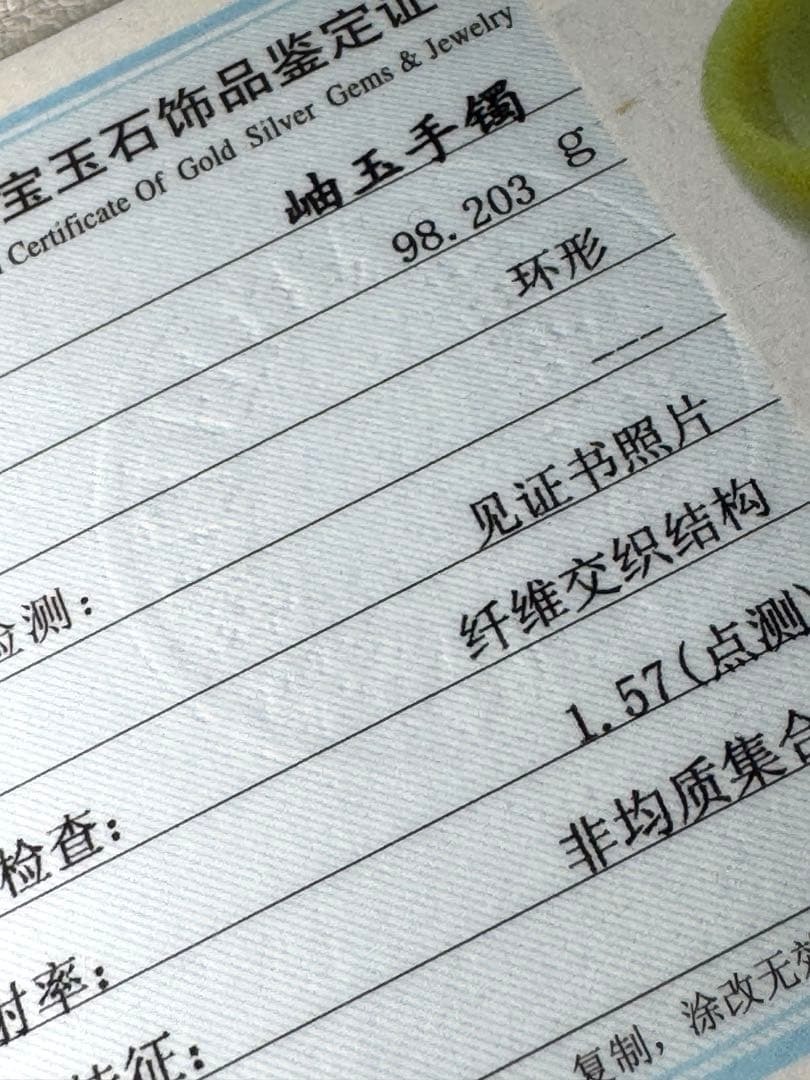 宝玉石饰品鉴定证
Certificate Of Gold Silver Gems & Jewelry
岫玉手镯
98.203 g
环形
---
检测：
见证书照片
纤维交织结构
检查：
1.57(点测)
射率：
非均质集合
特征：
复制，涂改无效